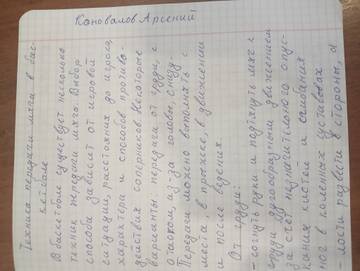 Коновалов Арсений
Техника передачи мяча в бас-
кетболе
В баскетболе существует несколько
техник передачи мяча. Выбор
способа зависит от игровой
ситуации, расстояния до игрока,
характера и способов противо-
действия соперников. Некоторые
варианты передачи: от груди, с
отскоком, из-за головы, снизу.
Передачи можно выполнять с
места, в прыжке, в движении
и после ведения.
От груди:
- согнуть руки и подтянуть мяч к
груди дугообразным движением
за счёт незначительного опус-
кания кистей и сгибания
ног в коленных суставах
разведи в стороны, а